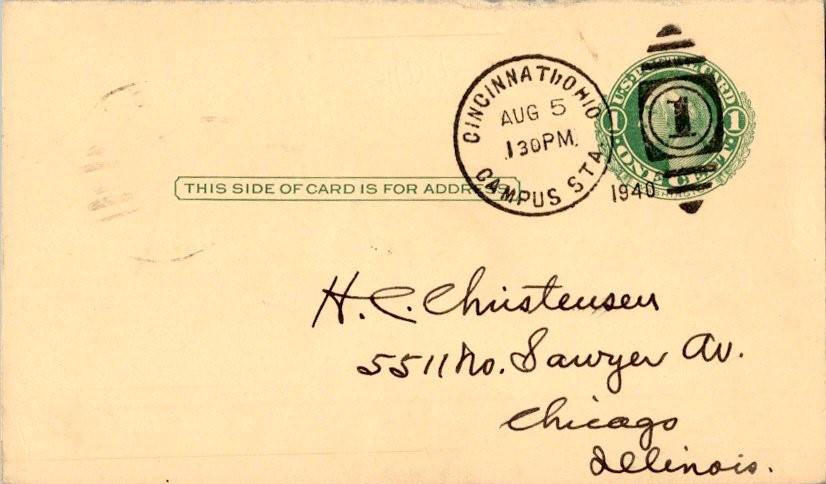 CINCINNATI, OHIO
AUG 5
1 30 PM
CAMPUS STA.
1940
U.S. POSTAL CARD
1 1 1
ONE CENT
WASHINGTON
THIS SIDE OF CARD IS FOR ADDRESS
H. C. Christensen
5511 No. Sawyer Av.
Chicago
Illinois.